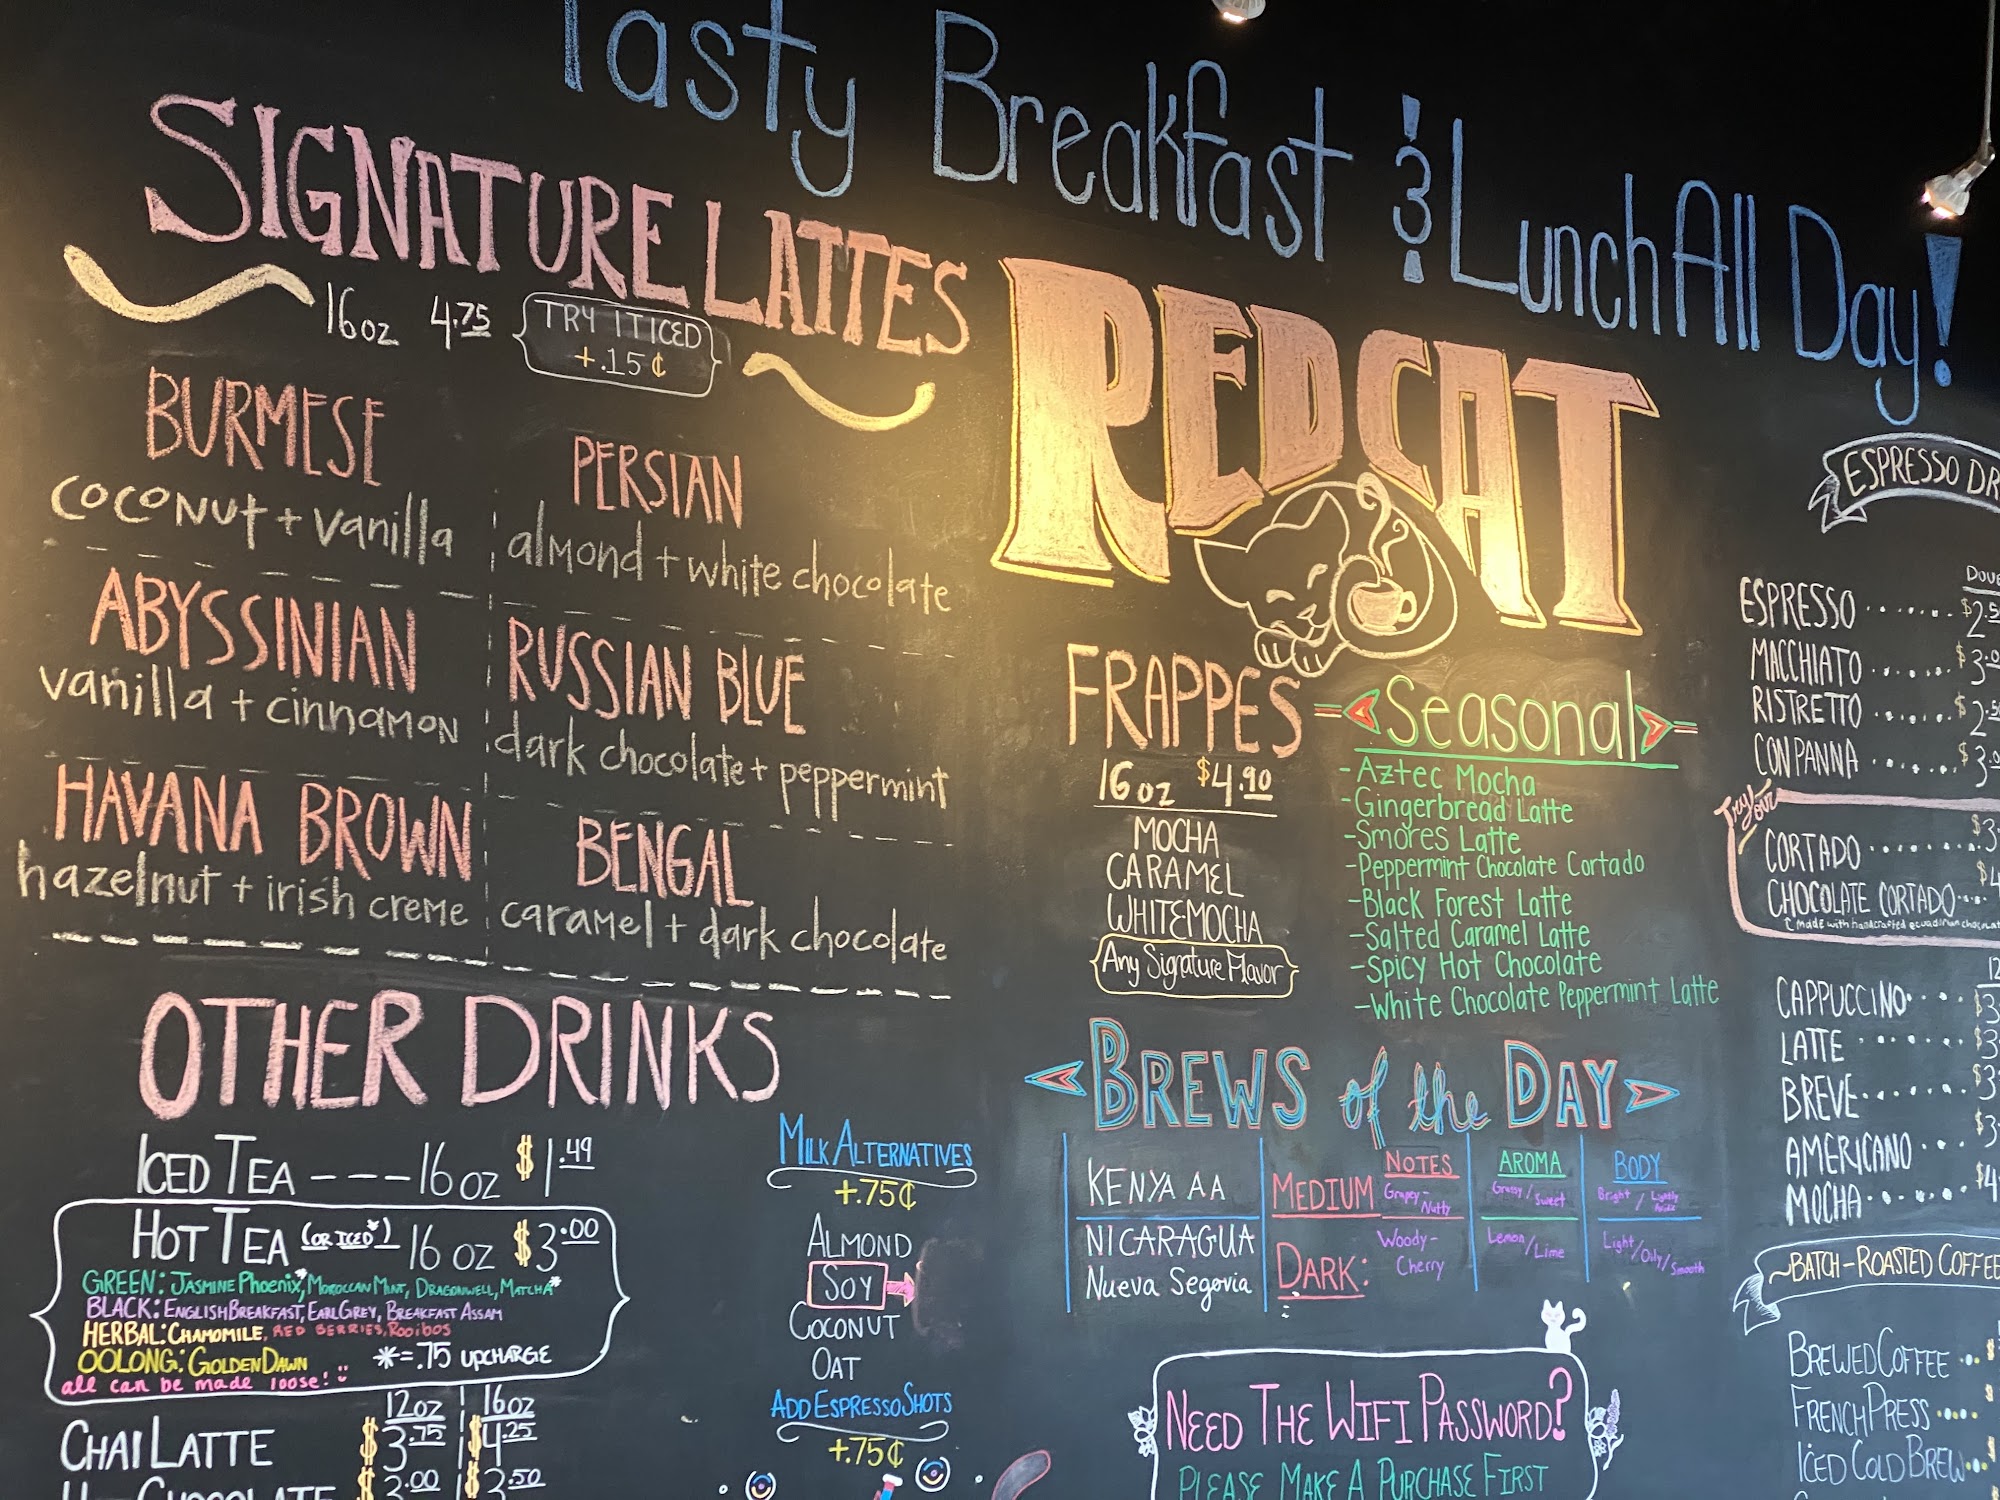 Tasty Breakfast & Lunch All Day!
SIGNATURE LATTES
16oz 4.75
TRY IT ICED
+.15¢
BURMESE
coconut + vanilla
PERSIAN
almond + white chocolate
ABYSSINIAN
vanilla + cinnamon
RUSSIAN BLUE
dark chocolate + peppermint
HAVANA BROWN
hazelnut + irish creme
BENGAL
caramel + dark chocolate
OTHER DRINKS
ICED TEA ---- 16oz $1.49
HOT TEA (OR ICED*) 16 oz $3.00
GREEN: JASMINE Phoenix*, MOROCCAN MINT, DRAGONWELL, MATCHA*
BLACK: ENGLISH BREAKFAST, EARL GREY, BREAKFAST ASSAM
HERBAL: CHAMOMILE, RED BERRIES, Rooibos
OOLONG: GOLDEN DAWN
*=.75 UPCHARGE
all can be made loose!
12oz 16oz
CHAI LATTE $3.75 $4.25
$3.00 $3.50
MILK ALTERNATIVES
+.75¢
ALMOND
SOY
COCONUT
OAT
ADD ESPRESSO SHOTS
+.75¢
RED CAT
FRAPPES
16oz $4.90
MOCHA
CARAMEL
WHITE MOCHA
Any Signature Flavor
Seasonal
-Aztec Mocha
-Gingerbread Latte
-Smores Latte
-Peppermint Chocolate Cortado
-Black Forest Latte
-Salted Caramel Latte
-Spicy Hot Chocolate
-White Chocolate Peppermint Latte
BREWS of the DAY
NOTES AROMA BODY
KENYA AA MEDIUM Grapey-Nutty Grassy/Sweet Bright/Lightly
NICARAGUA Nueva Segovia DARK: Woody-Cherry Lemon/Lime Light/Oily/Smooth
NEED THE WIFI PASSWORD?
PLEASE MAKE A PURCHASE FIRST
ESPRESSO
ESPRESSO ...... $2.5
MACCHIATO ...... $3.0
RISTRETTO ...... $2.5
CON PANNA ...... $3.0
Try our
CORTADO ........ $3
CHOCOLATE CORTADO... $4
made with handcrafted ecuadorian
CAPPUCCINO.... $3
LATTE ...... $3
BREVE....... $3
AMERICANO ... $3
MOCHA...... $4
~BATCH-ROASTED COFFEE
BREWED COFFEE
FRENCH PRESS
ICED COLD BREW